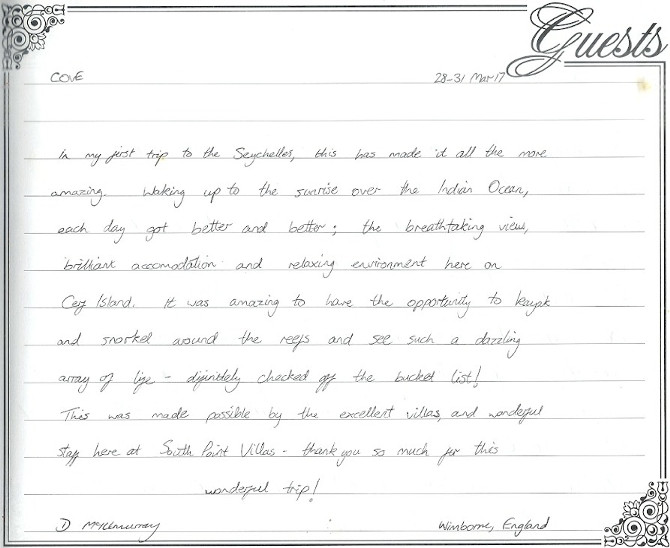 Guests
COVE 28-31 Mar 17
In my first trip to the Seychelles, this has made it all the more
amazing. Waking up to the sunrise over the Indian Ocean,
each day got better and better; the breathtaking view,
brilliant accomodation and relaxing environment here on
Cerf Island. It was amazing to have the opportunity to kayak
and snorkel around the reefs and see such a dazzling
array of life - definitely checked off the bucket list!
This was made possible by the excellent villas, and wonderful
staff here at South Point Villas - thank you so much for this
wonderful trip!
D McIlmurray Wimborne, England